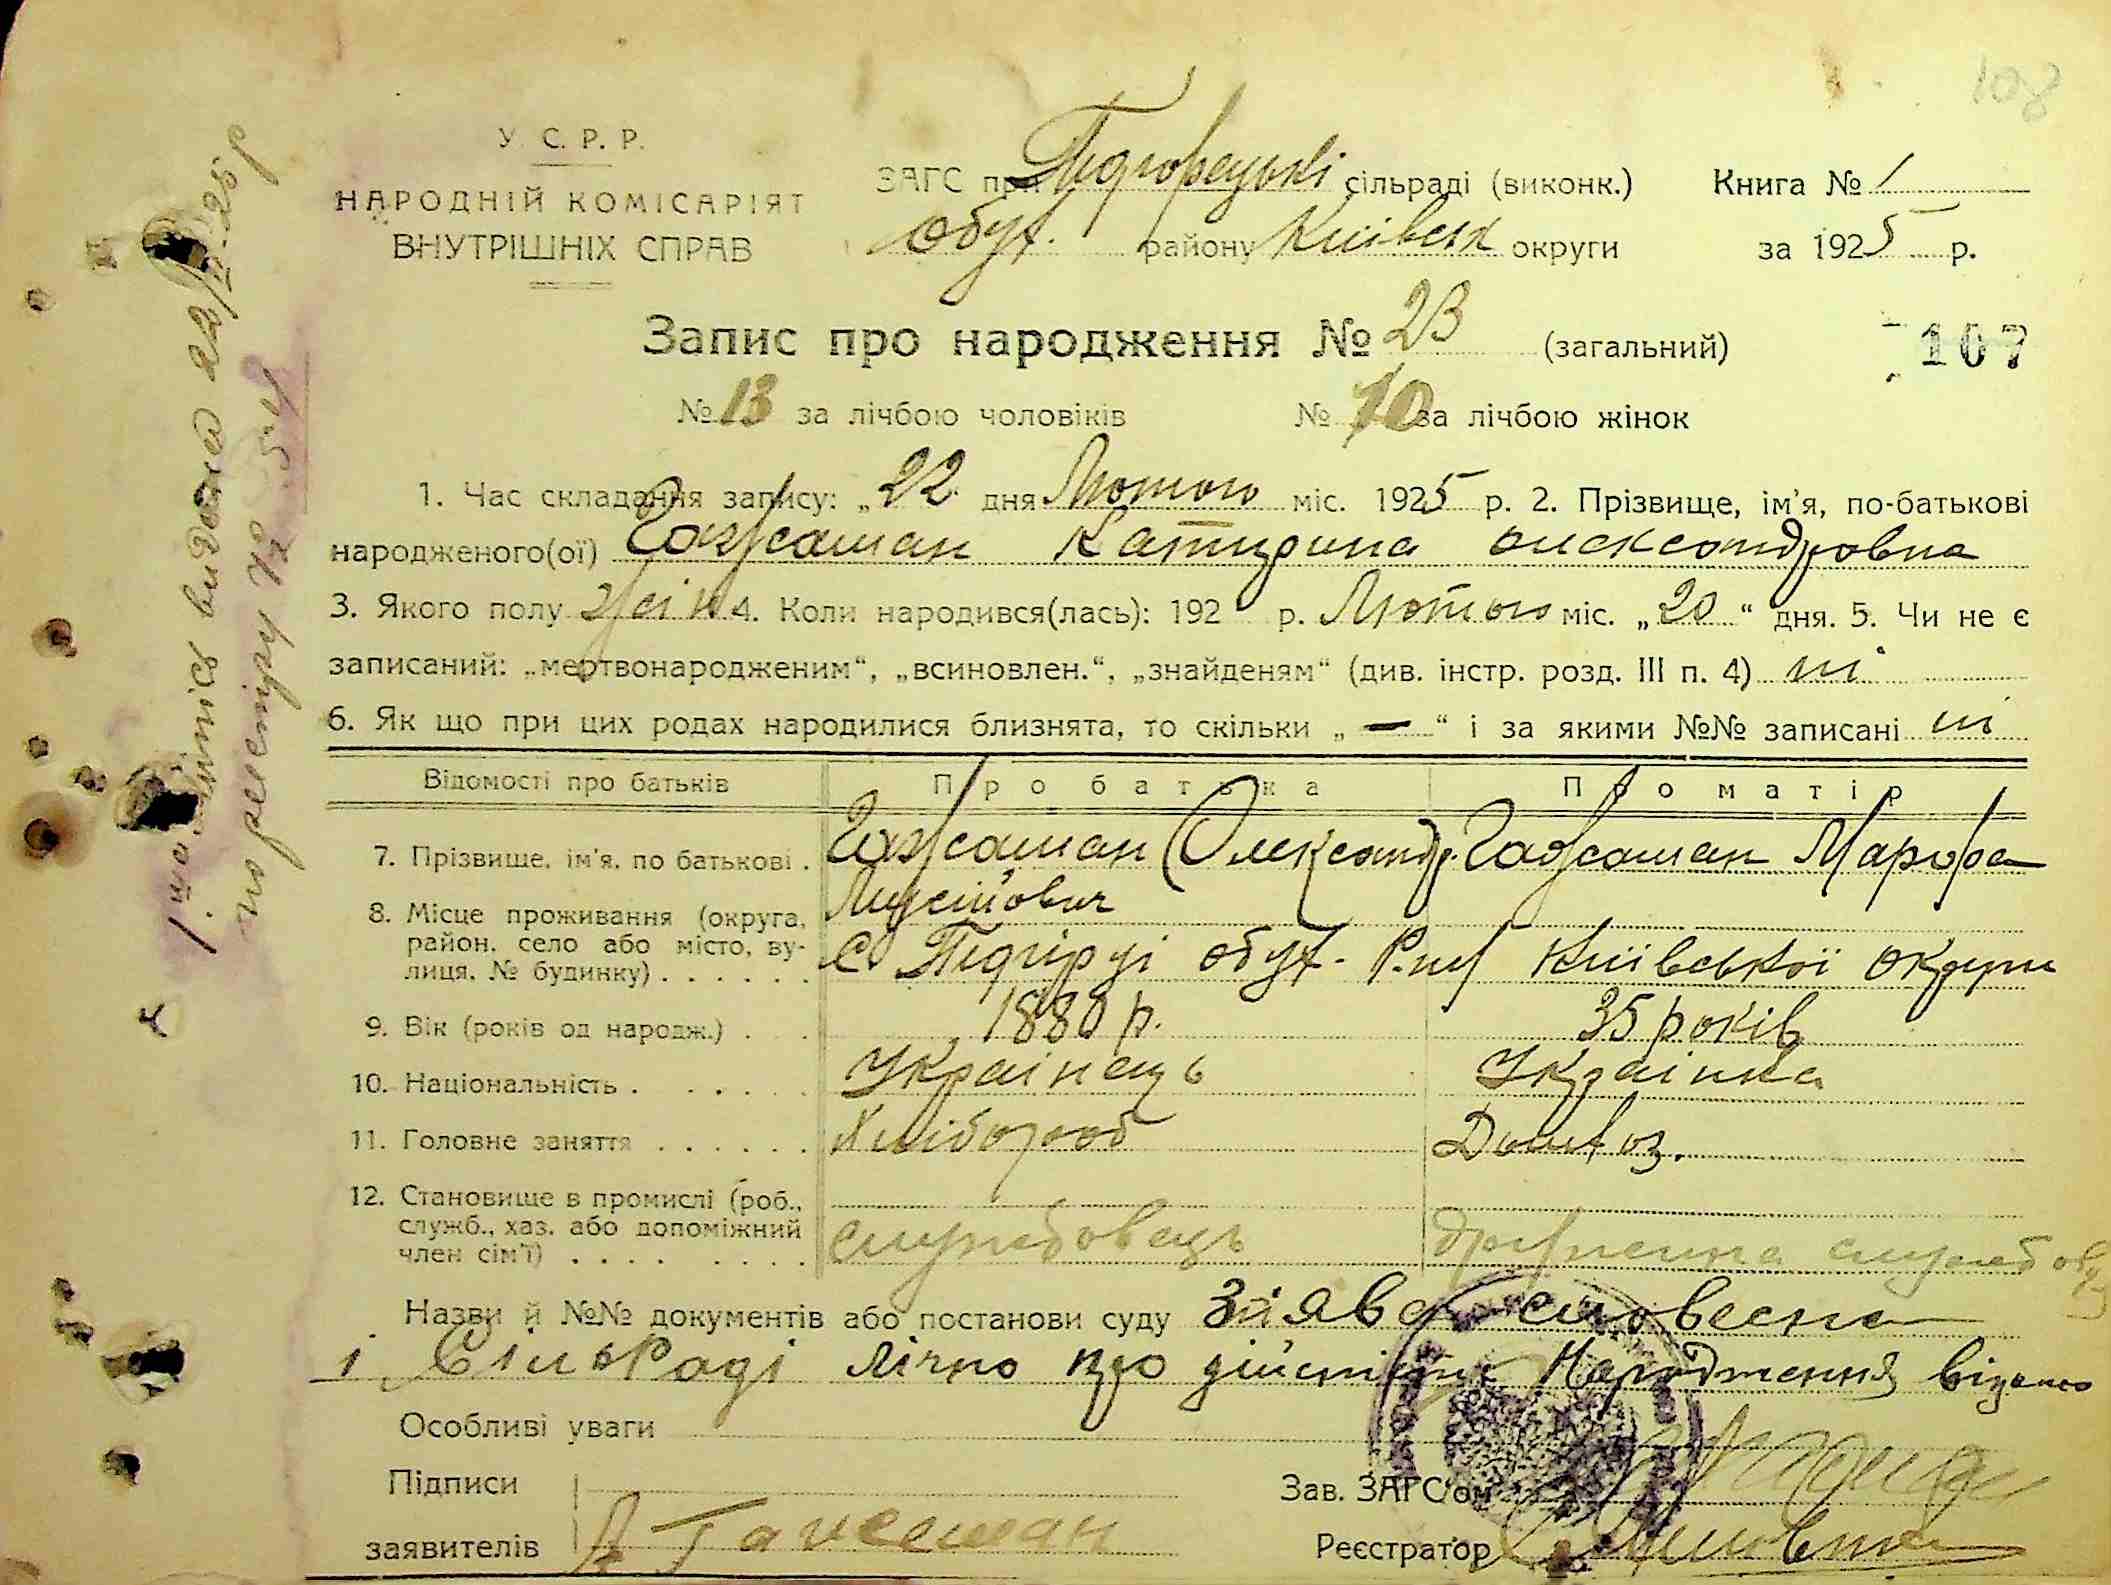 108
У. С. Р. Р.
НАРОДНІЙ КОМІСАРІЯТ
ВНУТРІШНІХ СПРАВ
ЗАГС при Підгорецькі сільраді (виконк.) Книга № 1
обух. району Київськ округи за 1925 р.
Запис про народження № 23 (загальний)
107
№ 13 за лічбою чоловіків № 10 за лічбою жінок
1. Час складання запису: „22 дня Лютого міс. 1925 р. 2. Прізвище, ім'я, по-батькові
народженого(ої) Гажаман Катирина олександровна
3. Якого полу жін 4. Коли народився(лась): 192 р. Лютого міс. „20“ дня. 5. Чи не є
записаний: „мертвонародженим“, „всиновлен.“, „знайденям“ (див. інстр. розд. III п. 4) ні
6. Як що при цих родах народилися близнята, то скільки „ — “ і за якими №№ записані ні
Відомості про батьків Про батька Про матір
7. Прізвище, ім'я, по батькові . Гажаман Олександр. Гажаман Марфа
Мусійович
8. Місце проживання (округа,
район, село або місто, ву-
лиця, № будинку) . . . . . . С Підгірці обух. Р-ну Київської округи
9. Вік (років од народж.) . . . 1880 р. 35 років
10. Національність . . . . . Українець Українка
11. Головне заняття . . . . . . Хлібороб Домхоз.
12. Становище в промислі (роб.,
служб., хаз. або допоміжний
член сім'ї) . . . . . . . . службовець дружина службовц
Назви й №№ документів або постанови суду Заява словесна
і Сільраді лічно про дійсність Народження відомо
Особливі уваги
Підписи
заявителів А Гажеман
Зав. ЗАГС'ом
Реєстратор
1ша випись видана 22/II-25 р
по реєстру № 54